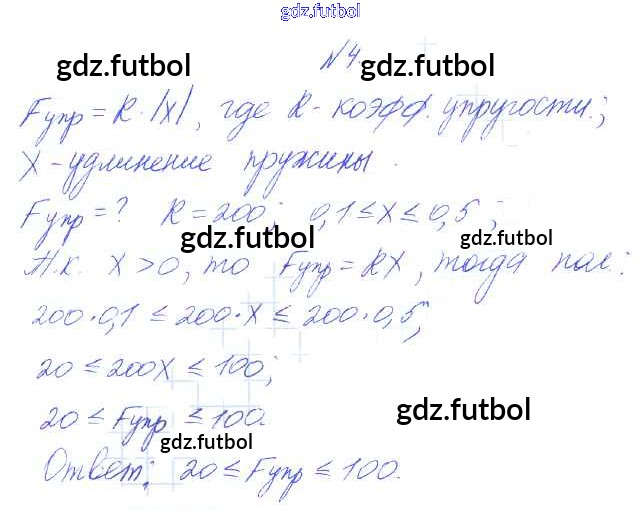 gdz.futbol
N4.
gdz.futbol gdz.futbol
Fупр = R·|x|, где R- коэфф. упругости;
X - удлинение пружины.
Fупр = ? R = 200; 0,1 ≤ x ≤ 0,5;
gdz.futbol gdz.futbol
Т.к. X > 0, то Fупр = RX, тогда пол.:
200·0,1 ≤ 200·X ≤ 200·0,5;
20 ≤ 200X ≤ 100;
20 ≤ Fупр ≤ 100.
gdz.futbol
gdz.futbol
Ответ: 20 ≤ Fупр ≤ 100.